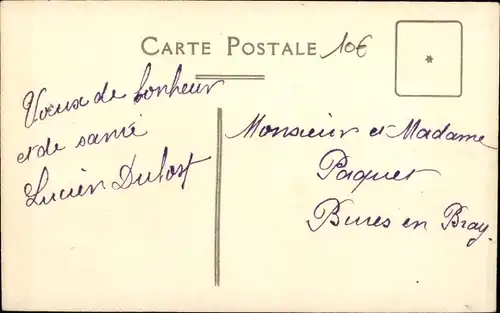 CARTE POSTALE
10€
Voeux de bonheur
et de santé
Lucien Dubost
Monsieur et Madame
Paquet
Bures en Bray.